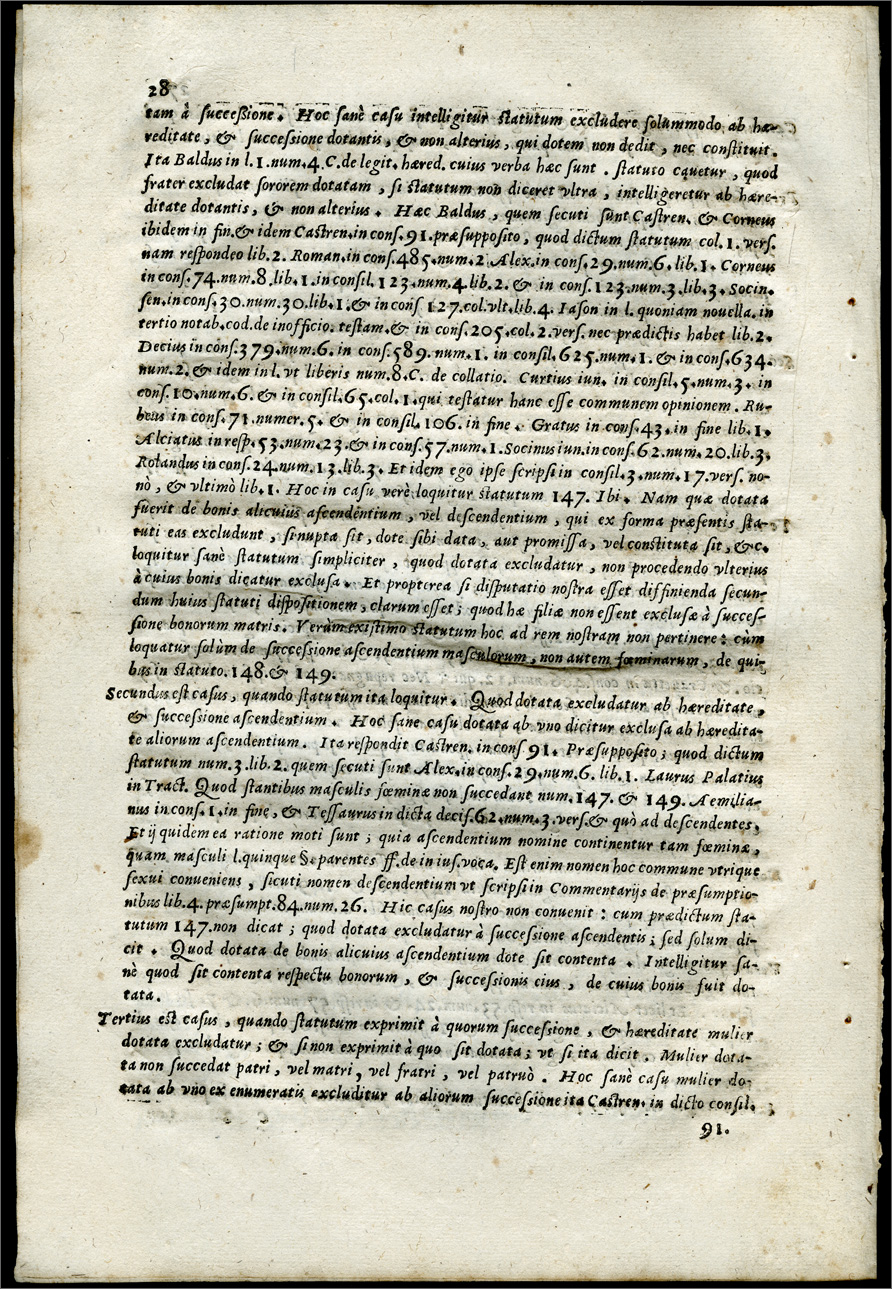 28
tam à successione. Hoc sanè casu intelligitur statutum excludere solummodo ab hæ-
reditate, & successione dotantis, & non alterius, qui dotem non dedit, nec constituit.
Ita Baldus in l.1.num.4.C.de legit.hæred.cuius verba hæc sunt. statuto cauetur, quod
frater excludat sororem dotatam, si statutum non diceret vltra, intelligeretur ab hære-
ditate dotantis, & non alterius. Hæc Baldus, quem secuti sunt Castren. & Corneus
ibidem in fin.& idem Castren.in cons.91.præsupposito, quod dictum statutum col.1.vers.
nam respondeo lib.2. Roman.in cons.485.num.2. Alex.in cons.29.num.6.lib.1. Corneus
in cons.74.num.8.lib.1.in consil.123.num.4.lib.2.& in cons.123.num.3.lib.3. Socin-
sen.in cons.30.num.30.lib.1.& in cons 127.col.vlt.lib.4. Iason in l.quoniam nouella.in
tertio notab.cod.de inofficio.testam.& in cons.205.col.2.vers.nec prædictis habet lib.2.
Decius in cons.379.num.6. in cons.589.num.1. in consil.625.num.1.& in cons.634.
num.2.& idem in l.vt liberis num.8.C. de collatio. Curtius iun. in consil.5.num.3. in
cons.10.num.6.& in consil.65.col.1.qui testatur hanc esse communem opinionem. Ru-
beus in cons.71.numer.5. & in consil.106.in fine. Gratus in cons.43.in fine lib.1.
Alciatus in resp.53.num.23.& in cons.57.num.1.Socinus iun.in cons.62.num.20.lib.3.
Rolandus in cons.24.num.13.lib.3. Et idem ego ipse scripsi in consil.3.num.17.vers. no-
nò, & vltimò lib.1. Hoc in casu verè loquitur statutum 147. Ibi. Nam quæ dotata
fuerit de bonis alicuius ascendentium, vel descendentium, qui ex forma præsentis sta-
tuti eas excludunt, si nupta sit, dote sibi data, aut promissa, vel constituta sit, &c.
loquitur sanè statutum simpliciter, quod dotata excludatur, non procedendo vlterius
à cuius bonis dicatur exclusa. Et propterea si disputatio nostra esset diffinienda secun-
dum huius statuti dispositionem, clarum esset; quod hæ filiæ non essent exclusæ à succes-
sione bonorum matris. Verùm existimo statutum hoc ad rem nostram non pertinere: cùm
loquatur solùm de successione ascendentium masculorum, non autem fœminarum, de qui-
bus in statuto.148.& 149.
Secundus est casus, quando statutum ita loquitur. Quod dotata excludatur ab hæreditate,
& successione ascendentium. Hoc sane casu dotata ab vno dicitur exclusa ab hæredita-
te aliorum ascendentium. Ita respondit Castren. in cons 91. Præsupposito; quod dictum
statutum num.3.lib.2. quem secuti sunt Alex.in cons.29.num.6. lib.1. Laurus Palatius
in Tract. Quod stantibus masculis fœminæ non succedant num.147. & 149. Aemilia-
nus in cons.1.in fine, & Tessaurus in dicta decis.62.num.3.vers.& quò ad descendentes.
Et ij quidem ea ratione moti sunt; quia ascendentium nomine continentur tam fœminæ,
quam masculi l.quinque §.parentes ff.de in ius.voca. Est enim nomen hoc commune vtrique
sexui conueniens, sicuti nomen descendentium vt scripsi in Commentarijs de præsumptio-
nibus lib.4.præsumpt.84.num.26. Hic casus nostro non conuenit: cum prædictum sta-
tutum 147.non dicat; quod dotata excludatur à successione ascendentis; sed solum di-
cit. Quod dotata de bonis alicuius ascendentium dote sit contenta. Intelligitur sa-
nè quod sit contenta respectu bonorum, & successionis eius, de cuius bonis fuit do-
tata.
Tertius est casus, quando statutum exprimit à quorum successione, & hæreditate mulier
dotata excludatur; & si non exprimit à quo sit dotata; vt si ita dicit. Mulier dota-
ta non succedat patri, vel matri, vel fratri, vel patruò. Hoc sanè casu mulier do-
tata ab vno ex enumeratis excluditur ab aliorum successione ita Castren. in dicto consil.
91.